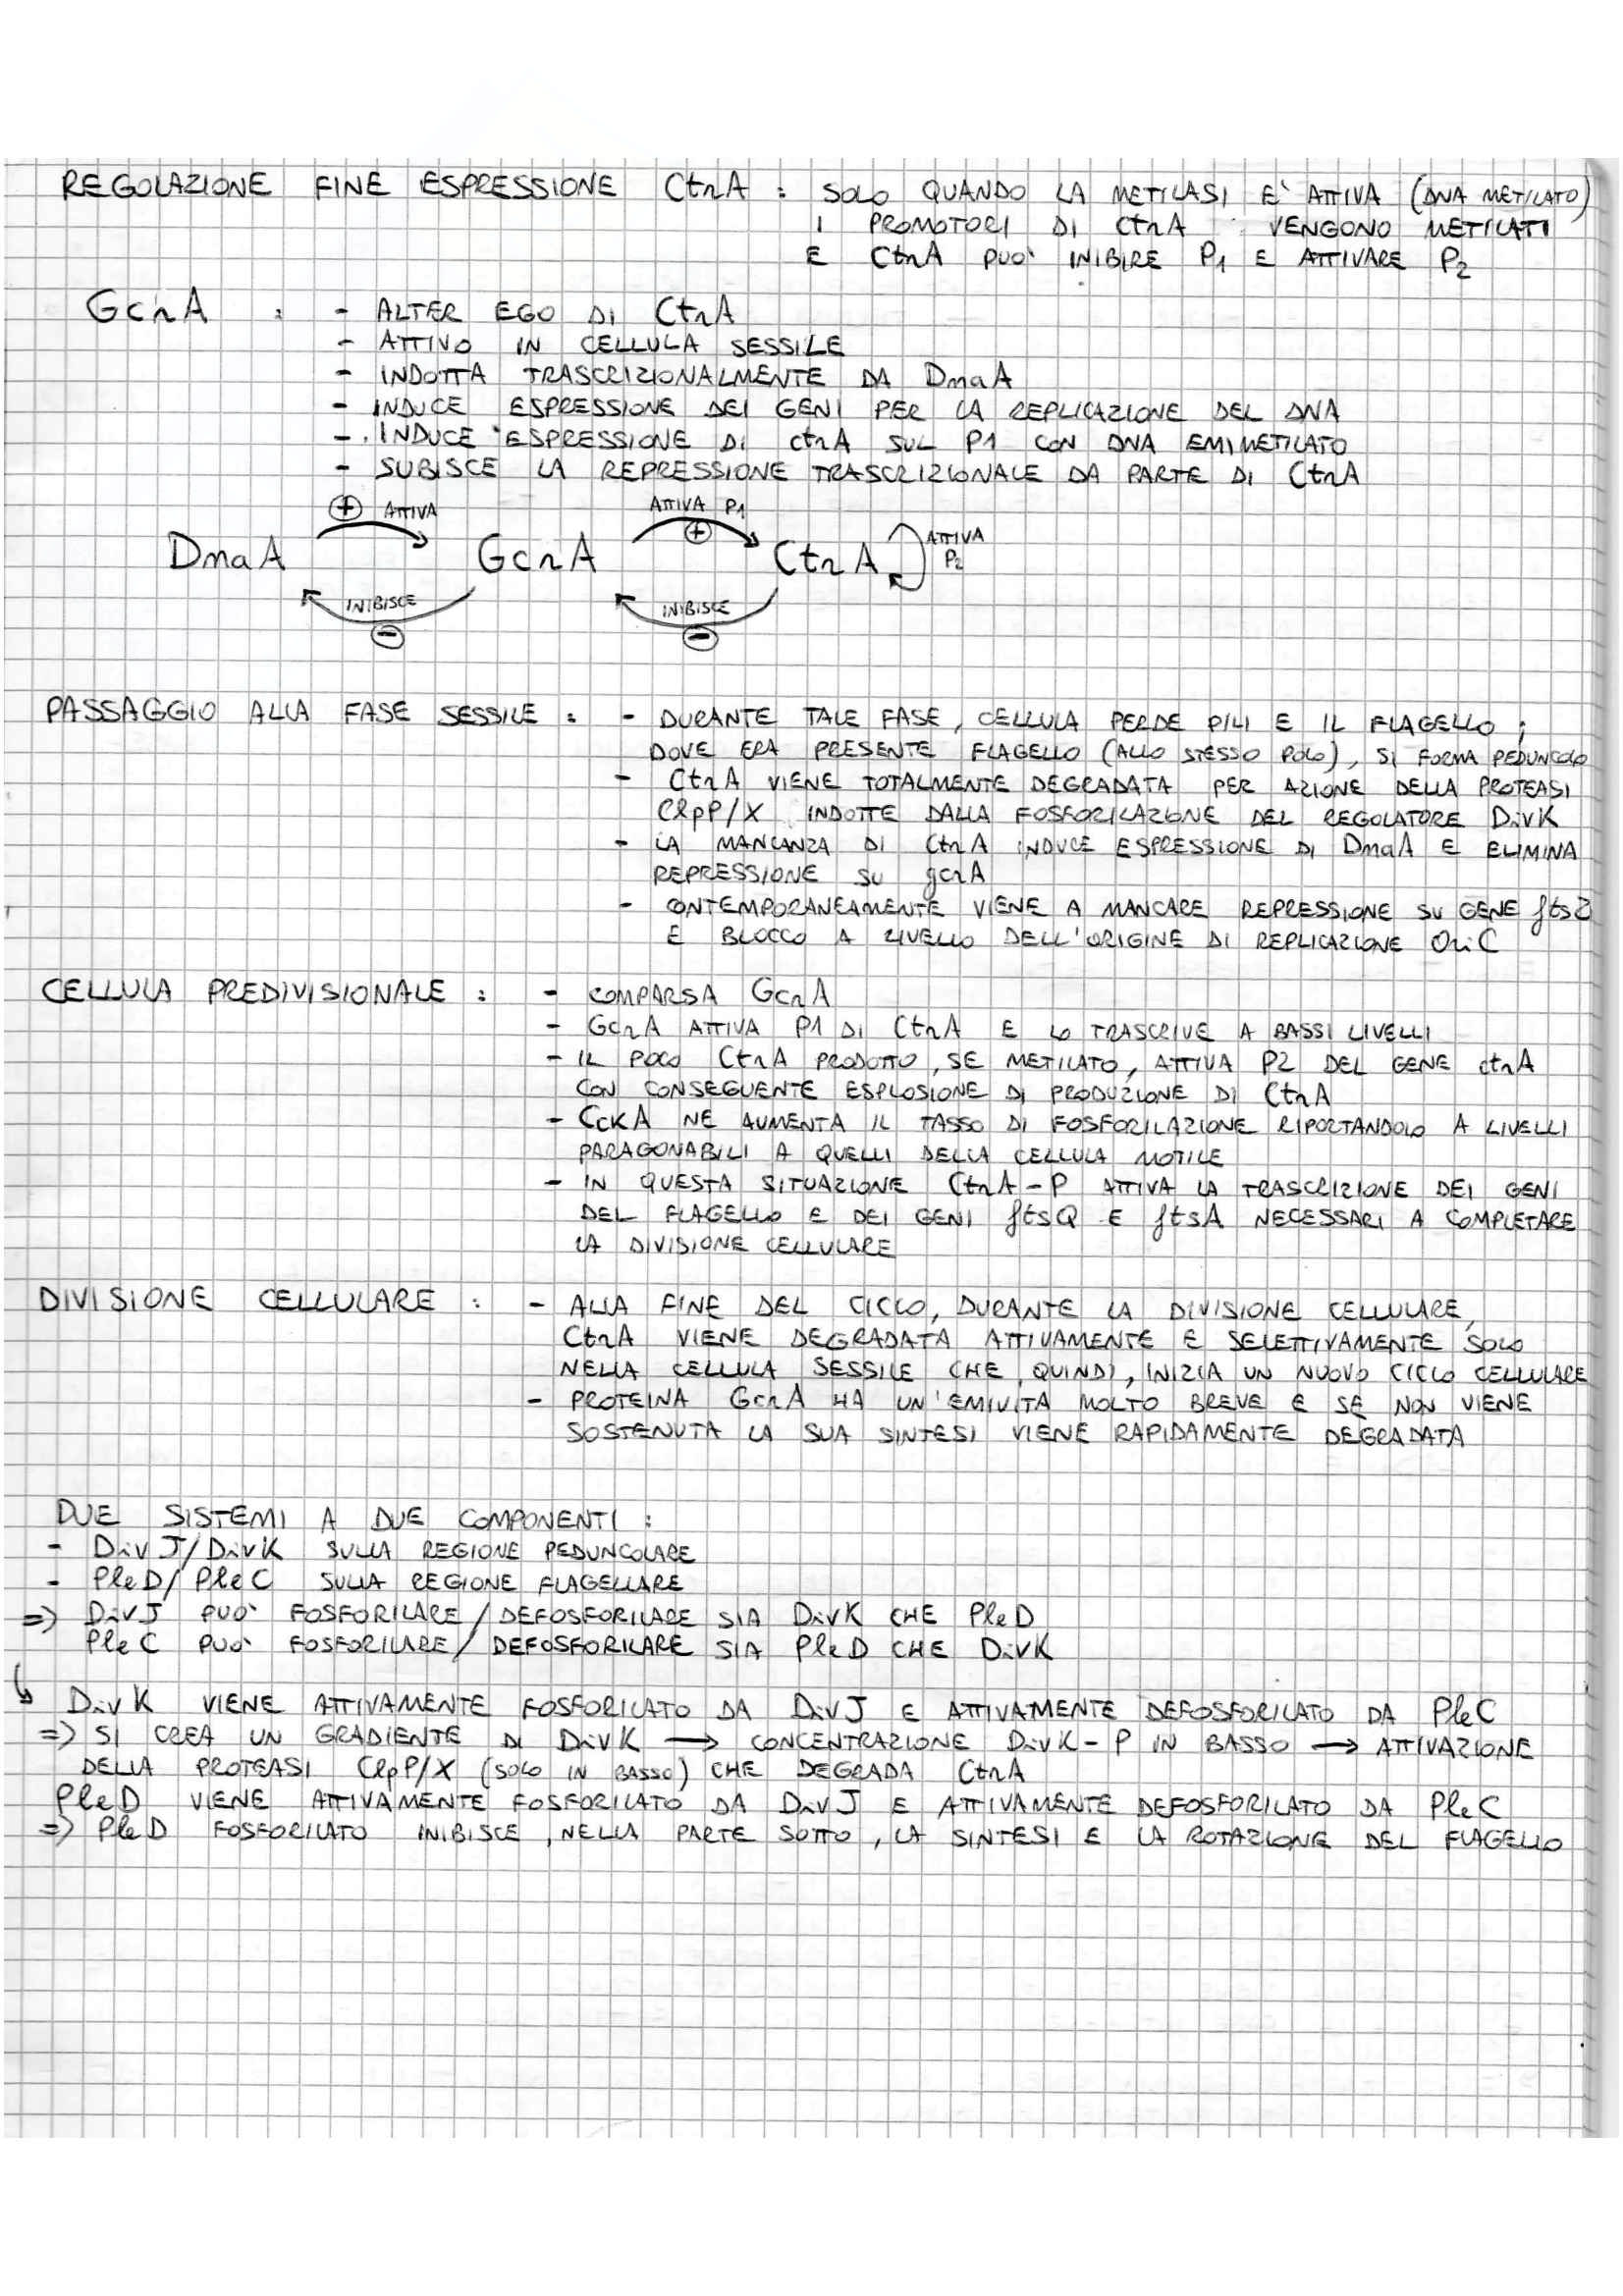 REGOLAZIONE FINE ESPRESSIONE CtrA : SOLO QUANDO LA METILASI E' ATTIVA (DNA METILATO)
I PROMOTORI DI CtrA VENGONO METILATI
E CtrA PUO' INIBIRE P1 E ATTIVARE P2
GcrA : - ALTER EGO DI CtrA
- ATTIVO IN CELLULA SESSILE
- INDOTTA TRASCRIZIONALMENTE DA DnaA
- INDUCE ESPRESSIONE DEI GENI PER LA REPLICAZIONE DEL DNA
- INDUCE ESPRESSIONE DI ctrA SUL P1 CON DNA EMIMETILATO
- SUBISCE LA REPRESSIONE TRASCRIZIONALE DA PARTE DI CtrA
+ ATTIVA ATTIVA P1 +
DnaA GcrA CtrA ATTIVA P2
INIBISCE - INIBISCE -
PASSAGGIO ALLA FASE SESSILE : - DURANTE TALE FASE, CELLULA PERDE PILI E IL FLAGELLO ;
DOVE ERA PRESENTE FLAGELLO (ALLO STESSO POLO), SI FORMA PEDUNCOLO
- CtrA VIENE TOTALMENTE DEGRADATA PER AZIONE DELLA PROTEASI
ClpP/X INDOTTE DALLA FOSFORILAZIONE DEL REGOLATORE DivK
- LA MANCANZA DI CtrA INDUCE ESPRESSIONE DI DnaA E ELIMINA
REPRESSIONE SU gcrA
- CONTEMPORANEAMENTE VIENE A MANCARE REPRESSIONE SU GENE ftsZ
E BLOCCO A LIVELLO DELL'ORIGINE DI REPLICAZIONE OriC
CELLULA PREDIVISIONALE : - COMPARSA GcrA
- GcrA ATTIVA P1 DI CtrA E LO TRASCRIVE A BASSI LIVELLI
- IL POCO CtrA PRODOTTO, SE METILATO, ATTIVA P2 DEL GENE ctrA
CON CONSEGUENTE ESPLOSIONE DI PRODUZIONE DI CtrA
- CcKA NE AUMENTA IL TASSO DI FOSFORILAZIONE RIPORTANDOLO A LIVELLI
PARAGONABILI A QUELLI DELLA CELLULA MOTILE
- IN QUESTA SITUAZIONE CtrA-P ATTIVA LA TRASCRIZIONE DEI GENI
DEL FLAGELLO E DEI GENI ftsQ E ftsA NECESSARI A COMPLETARE
LA DIVISIONE CELLULARE
DIVISIONE CELLULARE : - ALLA FINE DEL CICLO, DURANTE LA DIVISIONE CELLULARE,
CtrA VIENE DEGRADATA ATTIVAMENTE E SELETTIVAMENTE SOLO
NELLA CELLULA SESSILE CHE, QUINDI, INIZIA UN NUOVO CICLO CELLULARE
- PROTEINA GcrA HA UN'EMIVITA MOLTO BREVE E SE NON VIENE
SOSTENUTA LA SUA SINTESI VIENE RAPIDAMENTE DEGRADATA
DUE SISTEMI A DUE COMPONENTI :
- DivJ/DivK SULLA REGIONE PEDUNCOLARE
- PleD/PleC SULLA REGIONE FLAGELLARE
=> DivJ PUO' FOSFORILARE/DEFOSFORILARE SIA DivK CHE PleD
PleC PUO' FOSFORILARE/DEFOSFORILARE SIA PleD CHE DivK
↳ DivK VIENE ATTIVAMENTE FOSFORILATO DA DivJ E ATTIVAMENTE DEFOSFORILATO DA PleC
=> SI CREA UN GRADIENTE DI DivK → CONCENTRAZIONE DivK-P IN BASSO → ATTIVAZIONE
DELLA PROTEASI ClpP/X (SOLO IN BASSO) CHE DEGRADA CtrA
PleD VIENE ATTIVAMENTE FOSFORILATO DA DivJ E ATTIVAMENTE DEFOSFORILATO DA PleC
=> PleD FOSFORILATO INIBISCE, NELLA PARTE SOTTO, LA SINTESI E LA ROTAZIONE DEL FLAGELLO